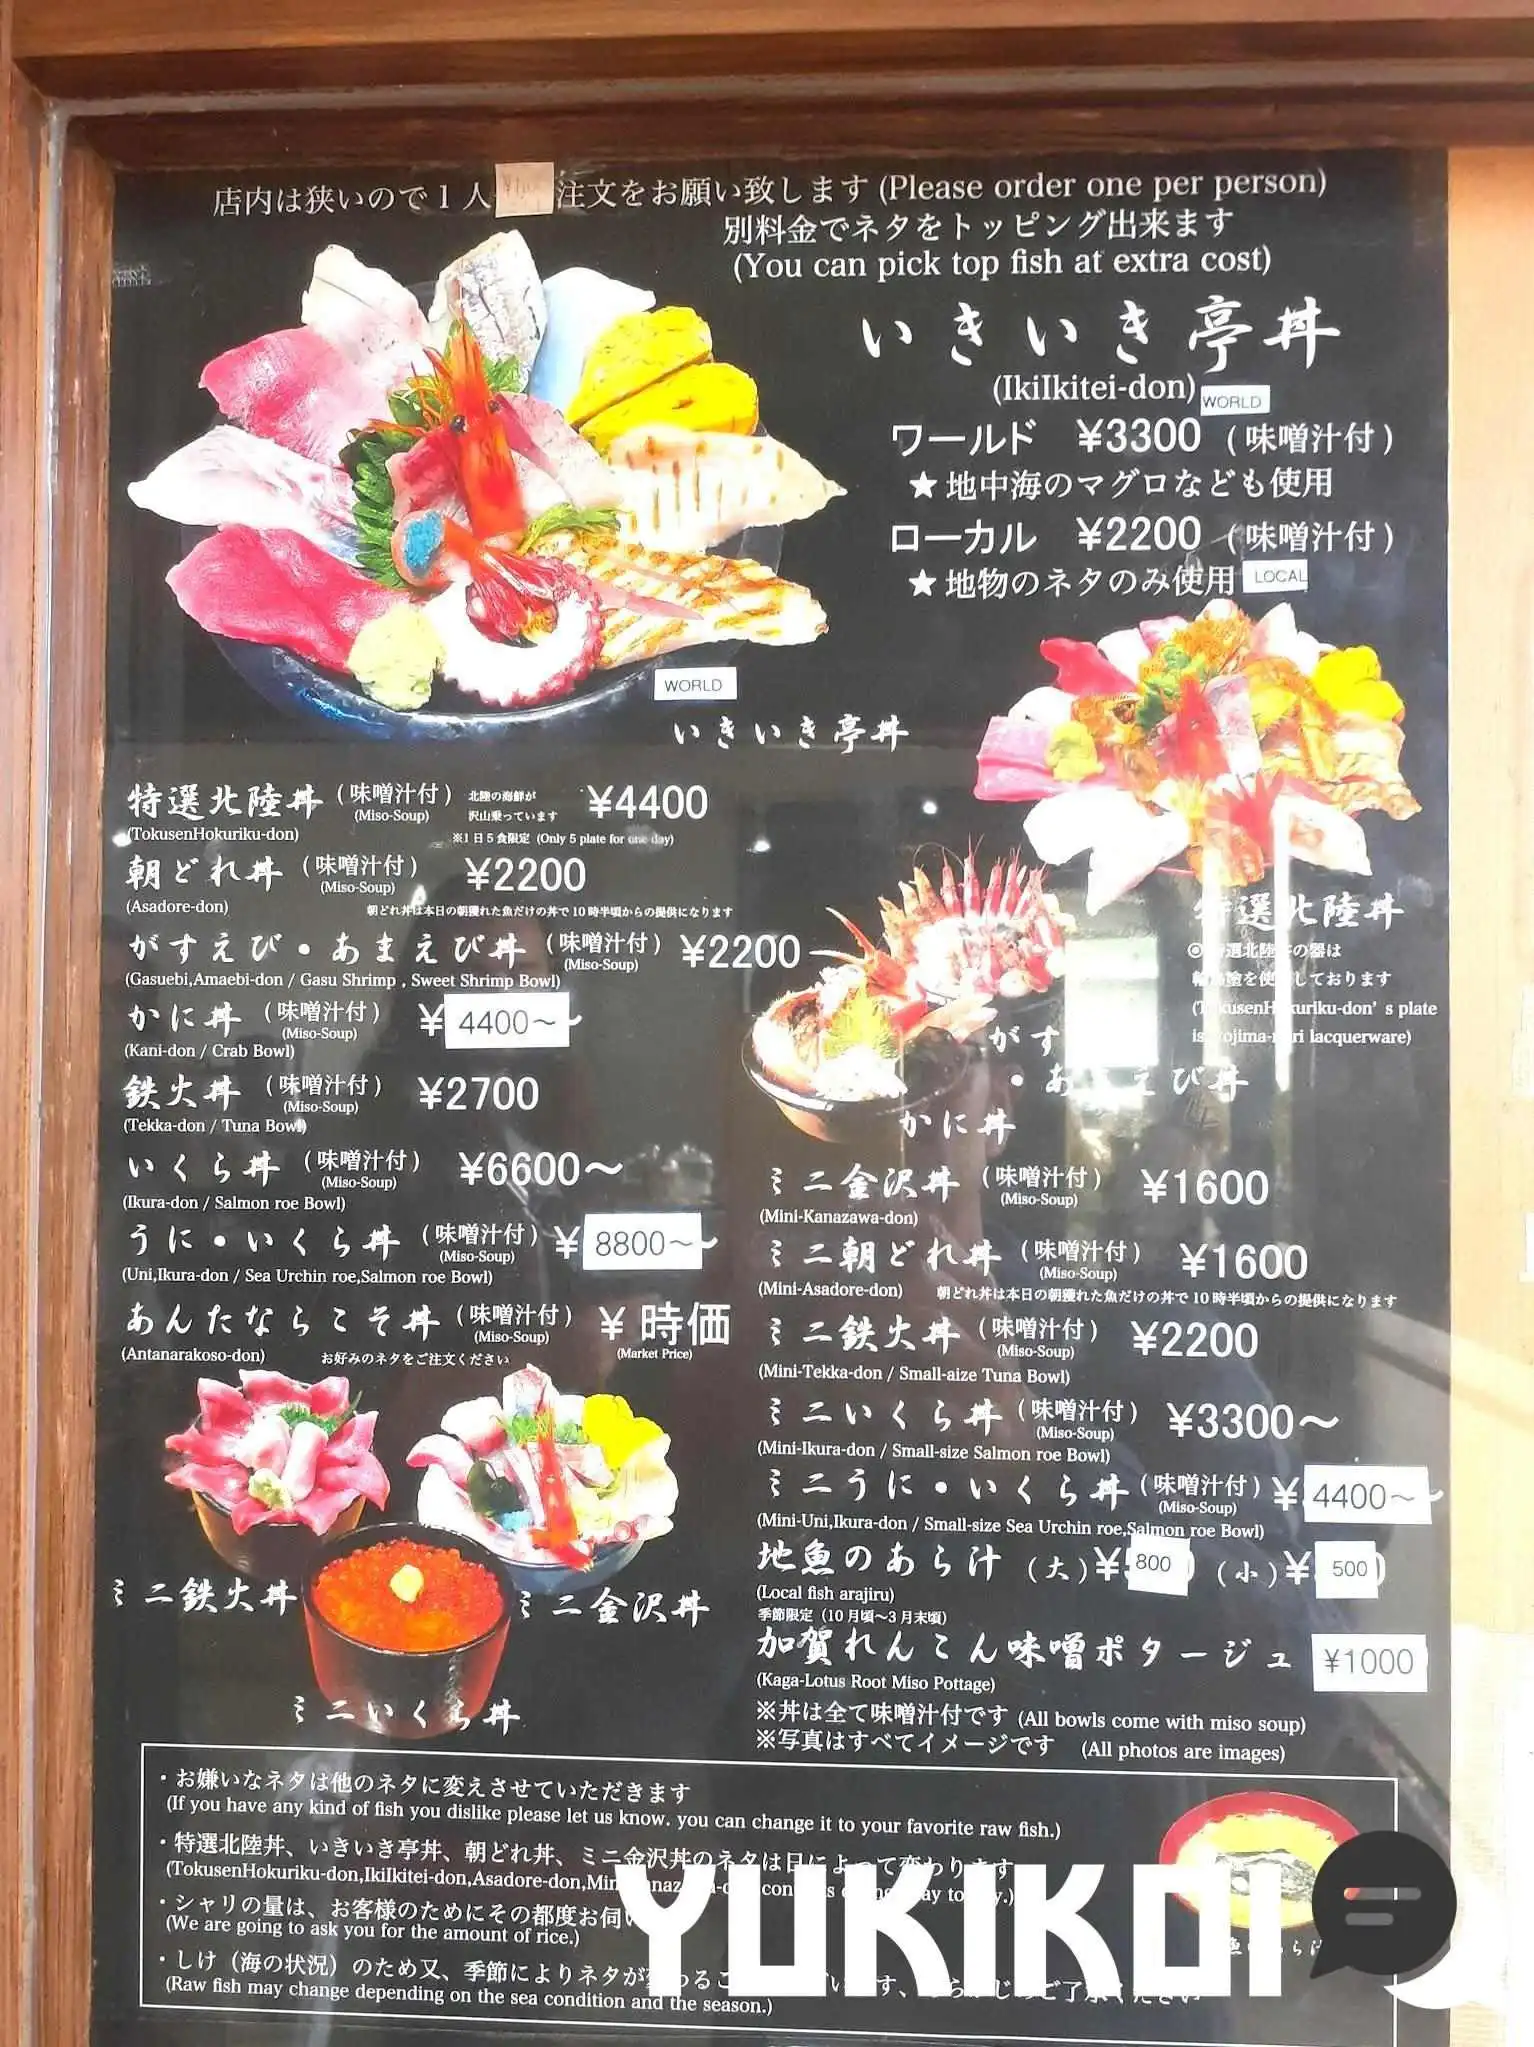 店内は狭いので1人 注文をお願い致します (Please order one per person)
別料金でネタをトッピング出来ます
(You can pick top fish at extra cost)
いきいき亭丼
(IkiIkitei-don) WORLD
ワールド ¥3300 (味噌汁付)
★地中海のマグロなども使用
ローカル ¥2200 (味噌汁付)
★地物のネタのみ使用 LOCAL
WORLD
いきいき亭丼
特選北陸丼 (味噌汁付) 北陸の海鮮が ¥4400
(Miso-Soup) 沢山乗っています
(TokusenHokuriku-don) ※1日5食限定 (Only 5 plate for one day)
朝どれ丼 (味噌汁付) ¥2200
(Miso-Soup)
(Asadore-don) 朝どれ丼は本日の朝獲れた魚だけの丼で10時半頃からの提供になります
がすえび・あまえび丼 (味噌汁付) ¥2200
(Miso-Soup)
(Gasuebi,Amaebi-don / Gasu Shrimp , Sweet Shrimp Bowl)
かに丼 (味噌汁付) ¥4400~
(Miso-Soup)
(Kani-don / Crab Bowl)
鉄火丼 (味噌汁付) ¥2700
(Miso-Soup)
(Tekka-don / Tuna Bowl)
いくら丼 (味噌汁付) ¥6600~
(Miso-Soup)
(Ikura-don / Salmon roe Bowl)
うに・いくら丼 (味噌汁付) ¥8800~
(Miso-Soup)
(Uni,Ikura-don / Sea Urchin roe,Salmon roe Bowl)
あんたならこそ丼 (味噌汁付) ¥時価
(Miso-Soup) (Market Price)
(Antanarakoso-don) お好みのネタをご注文ください
ミニ鉄火丼
ミニ金沢丼
ミニいくら丼
特選北陸丼
選北陸丼の器は
を使 しております
uriku-don's plate
lacquerware)
がす
・あまえび丼
かに丼
ミニ金沢丼 (味噌汁付) ¥1600
(Miso-Soup)
(Mini-Kanazawa-don)
ミニ朝どれ丼 (味噌汁付) ¥1600
(Miso-Soup)
(Mini-Asadore-don) 朝どれ丼は本日の朝獲れた魚だけの丼で10時半頃からの提供になります
ミニ鉄火丼 (味噌汁付) ¥2200
(Miso-Soup)
(Mini-Tekka-don / Small-aize Tuna Bowl)
ミニいくら丼 (味噌汁付) ¥3300~
(Miso-Soup)
(Mini-Ikura-don / Small-size Salmon roe Bowl)
ミニうに・いくら丼 (味噌汁付) ¥4400~
(Miso-Soup)
(Mini-Uni,Ikura-don / Small-size Sea Urchin roe,Salmon roe Bowl)
地魚のあら汁 (大)¥800 (小)¥500
(Local fish arajiru)
季節限定 (10月頃~3月末頃)
加賀れんこん味噌ポタージュ ¥1000
(Kaga-Lotus Root Miso Pottage)
※丼は全て味噌汁付です (All bowls come with miso soup)
※写真はすべてイメージです (All photos are images)
・お嫌いなネタは他のネタに変えさせていただきます
(If you have any kind of fish you dislike please let us know. you can change it to your favorite raw fish.)
・特選北陸丼、いきいき亭丼、朝どれ丼、ミニ金沢丼のネタは日によって変わります
(TokusenHokuriku-don,IkiIkitei-don,Asadore-don,
・シャリの量は、お客様のためにその都度お伺い
(We are going to ask you for the amount of rice.)
・しけ(海の状況)のため又、季節によりネタが変わるこ
(Raw fish may change depending on the sea condition and the season.)
YUKIKOI